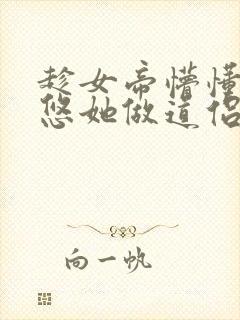 趁女帝懵懂
悠她做道侣
向一帆